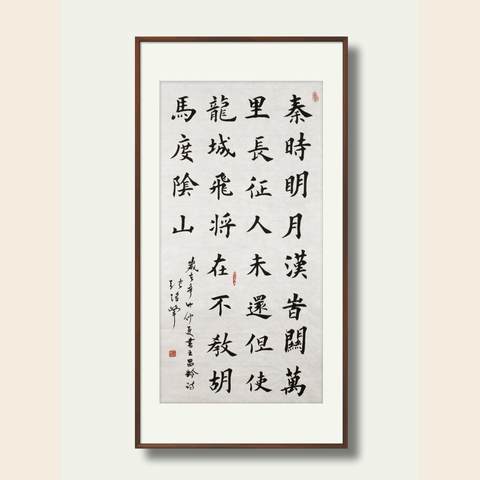 秦時明月漢旹關萬
里長征人未還但使
龍城飛将在不教胡
馬度陰山
歲在辛丑仲夏書王昌齡詩